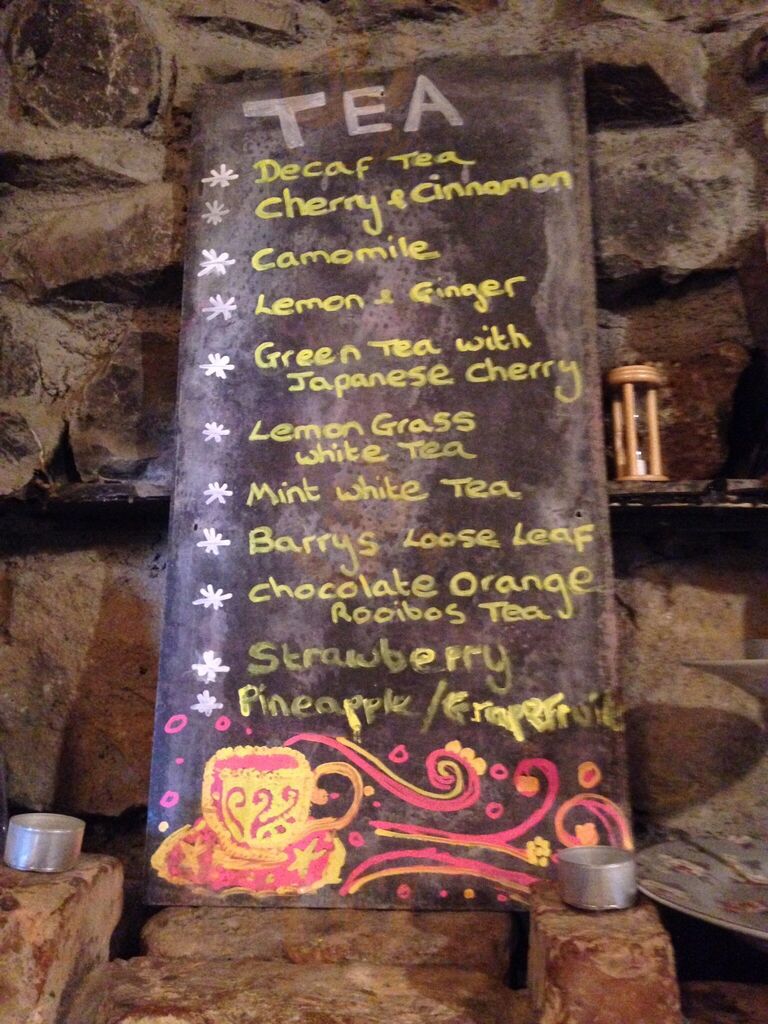 TEA
Decaf Tea
Cherry & Cinnamon
Camomile
Lemon & Ginger
Green Tea with
Japanese Cherry
Lemon Grass
White Tea
Mint White Tea
Barrys Loose Leaf
Chocolate Orange
Rooibos Tea
Strawberry
Pineapple/Grapefruit